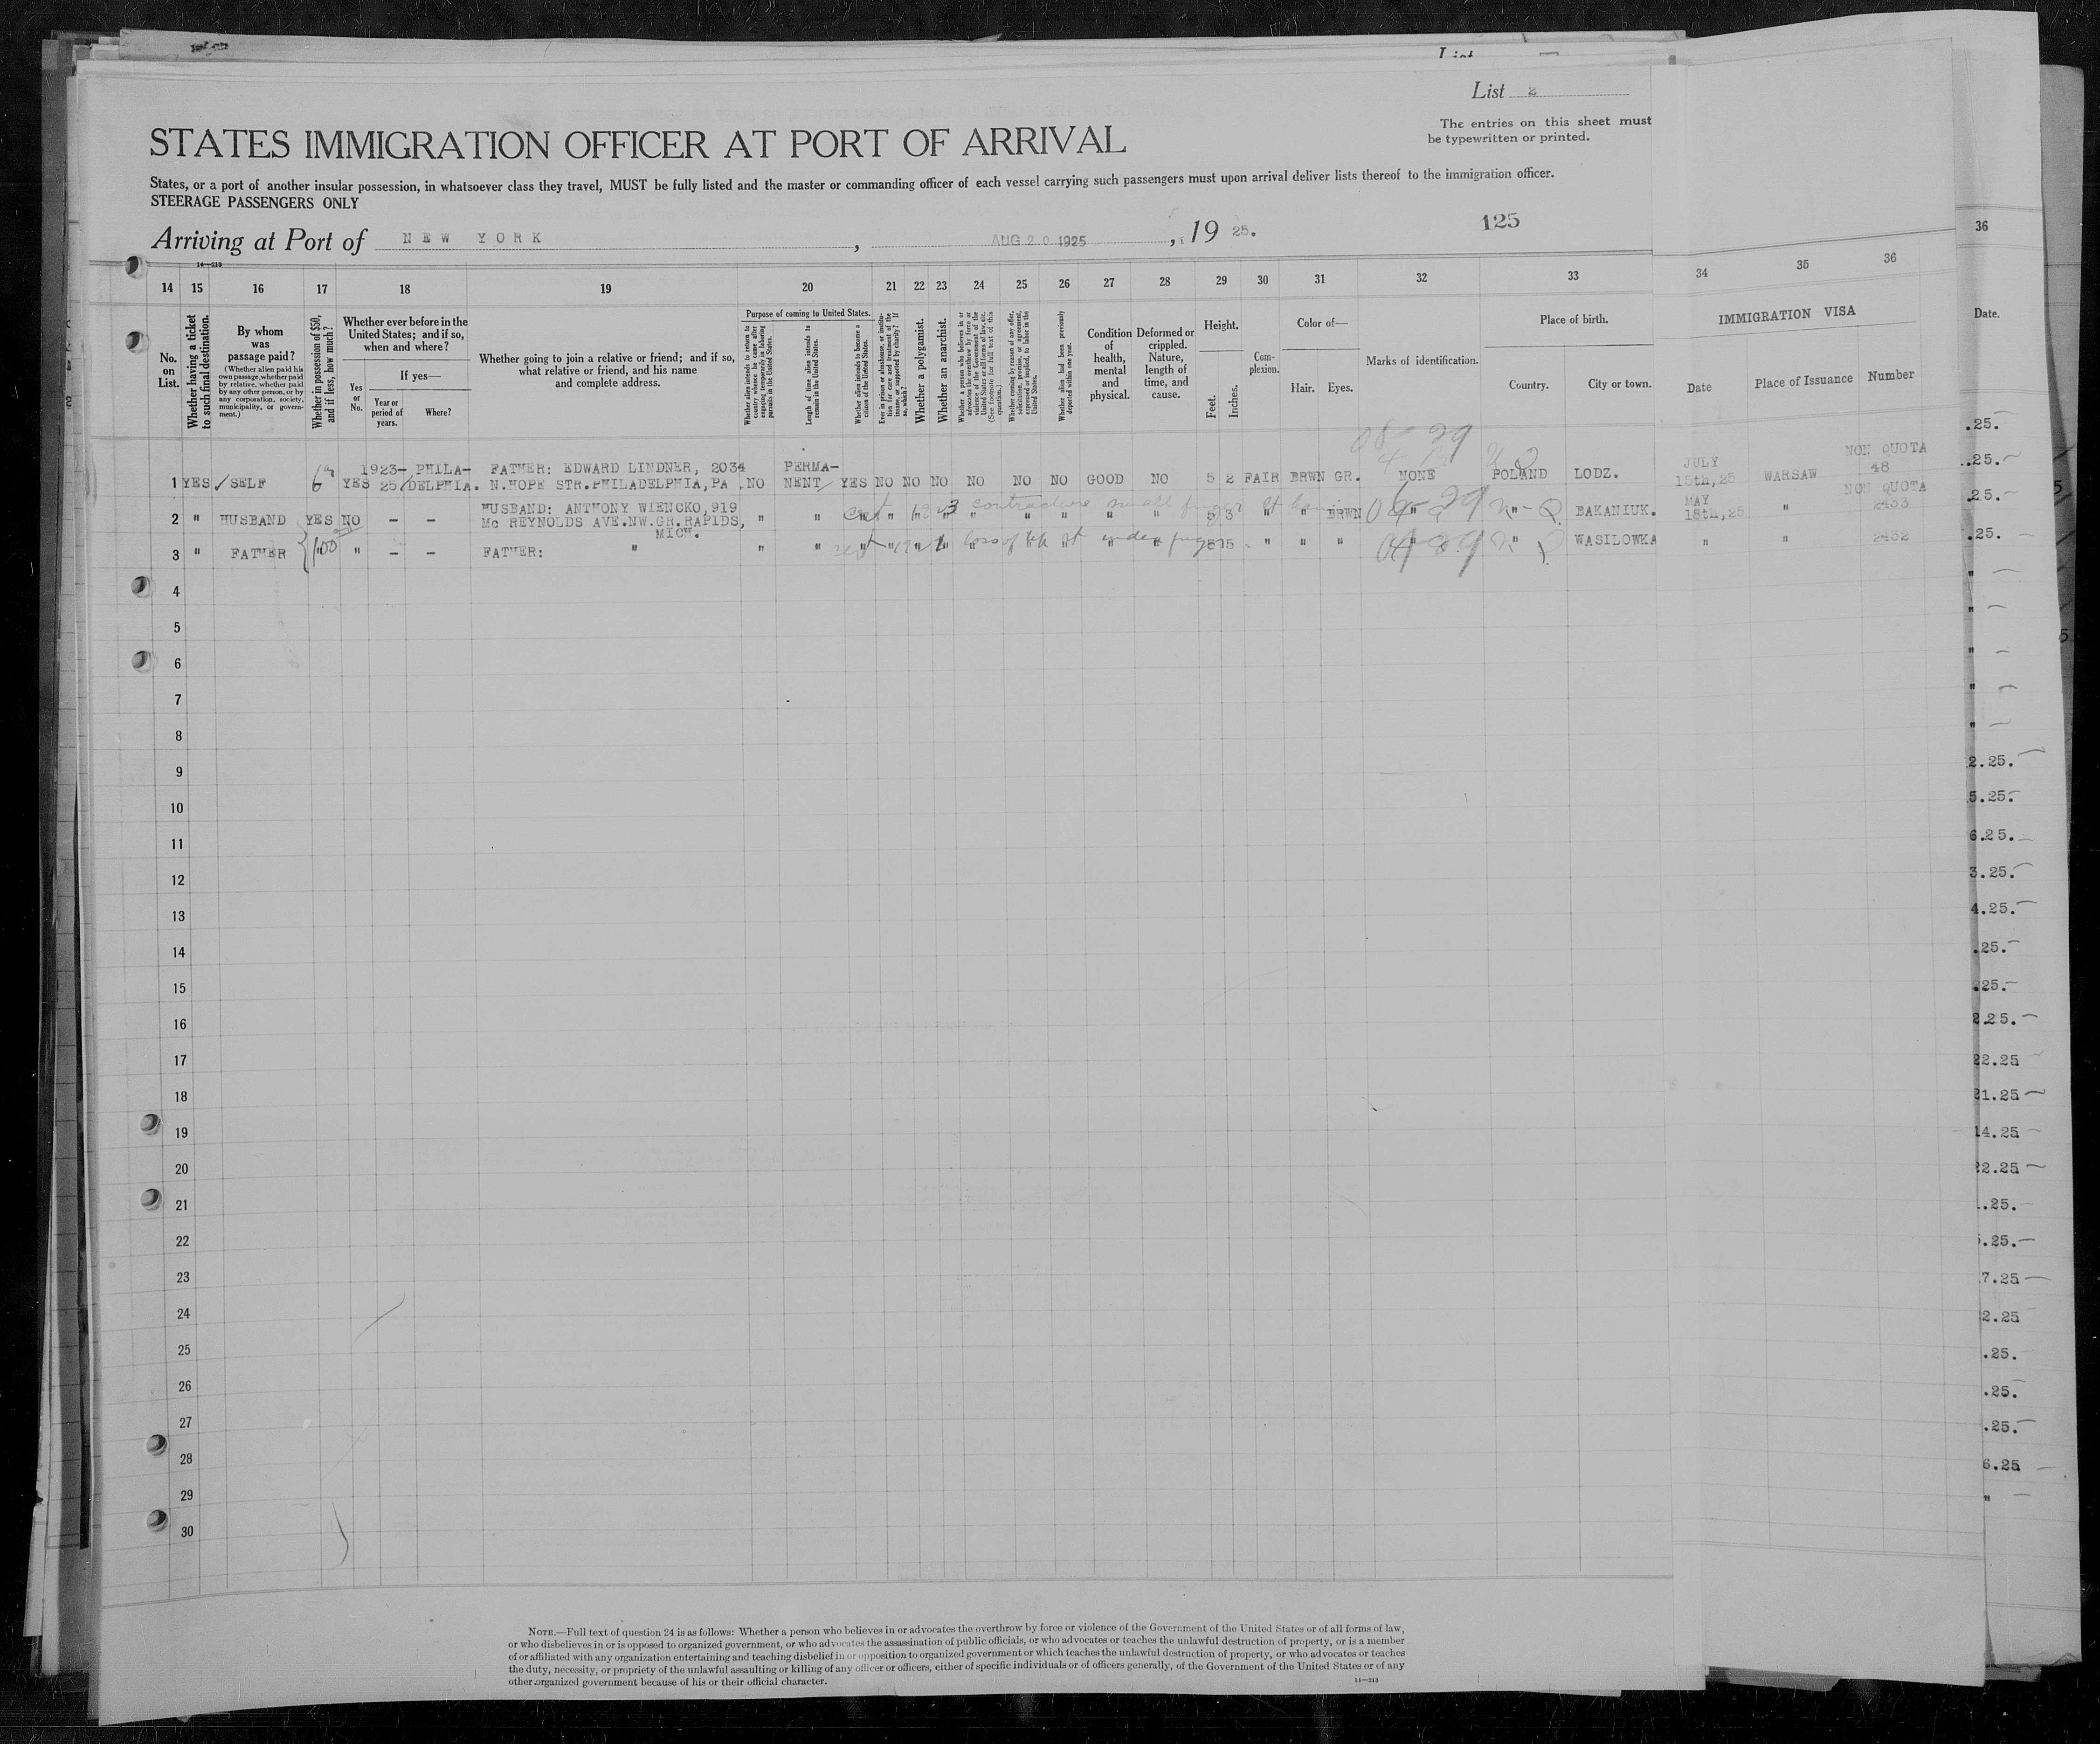 List 2
The entries on this sheet must
be typewritten or printed.
STATES IMMIGRATION OFFICER AT PORT OF ARRIVAL
States, or a port of another insular possession, in whatsoever class they travel, MUST be fully listed and the master or commanding officer of each vessel carrying such passengers must upon arrival deliver lists thereof to the immigration officer.
STEERAGE PASSENGERS ONLY
125
Arriving at Port of NEW YORK, AUG 20 1925, 1925.
14—213
14 15 16 17 18 19 20 21 22 23 24 25 26 27 28 29 30 31 32 33 34 35 36
No. on List.
Whether having a ticket to such final destination.
By whom was passage paid?
(Whether alien paid his own passage, whether paid by relative, whether paid by any other person, or by any corporation, society, municipality, or government.)
Whether in possession of $50, and if less, how much?
Whether ever before in the United States; and if so, when and where?
Yes or No.
If yes—
Year or period of years.
Where?
Whether going to join a relative or friend; and if so, what relative or friend, and his name and complete address.
Purpose of coming to United States.
Whether alien intends to return to country whence he came after engaging temporarily in laboring pursuits in the United States.
Length of time alien intends to remain in the United States.
Whether alien intends to become a citizen of the United States.
Ever in prison or almshouse, or institution for care and treatment of the insane, or supported by charity? If so, which?
Whether a polygamist.
Whether an anarchist.
Whether a person who believes in or advocates the overthrow by force or violence of the Government of the United States or all forms of law, etc. (See footnote for full text of this question.)
Whether coming by reason of any offer, solicitation, promise, or agreement, expressed or implied, to labor in the United States.
Whether alien had been previously deported within one year.
Condition of health, mental and physical.
Deformed or crippled. Nature, length of time, and cause.
Height.
Feet. Inches.
Complexion.
Color of—
Hair. Eyes.
Marks of identification.
Place of birth.
Country. City or town.
IMMIGRATION VISA
Date Place of Issuance Number
1 YES SELF YES 1923-25 PHILADELPHIA. FATHER: EDWARD LINDNER, 2034 N.HOPE STR.PHILADELPHIA,PA. NO PERMANENT YES NO NO NO NO NO NO GOOD NO 5 2 FAIR BRWN GR. NONE POLAND LODZ. JULY 15th,25 WARSAW NON QUOTA 48
2 " HUSBAND YES NO - - HUSBAND: ANTHONY WIENCKO,919 Mc REYNOLDS AVE.NW.GR.RAPIDS, MICH. " " " " " " " " " " " 5 3 " " BRWN " " BAKANIUK. MAY 18th,25 " NON QUOTA 2433
contracture small
3 " FATHER 100 " - - FATHER: " " " " " " " " " " " " 5 " " " " " WASILOWKA " " 2432
loss of index
4
5
6
7
8
9
10
11
12
13
14
15
16
17
18
19
20
21
22
23
24
25
26
27
28
29
30
NOTE.—Full text of question 24 is as follows: Whether a person who believes in or advocates the overthrow by force or violence of the Government of the United States or of all forms of law,
or who disbelieves in or is opposed to organized government, or who advocates the assassination of public officials, or who advocates or teaches the unlawful destruction of property, or is a member
of or affiliated with any organization entertaining and teaching disbelief in or opposition to organized government or which teaches the unlawful destruction of property, or who advocates or teaches
the duty, necessity, or propriety of the unlawful assaulting or killing of any officer or officers, either of specific individuals or of officers generally, of the Government of the United States or of any
other organized government because of his or their official character.
36
Date.
.25.
.25.
.25.
.25.
2.25.
5.25.
6.25.
3.25.
4.25.
.25.
.25.
2.25.
22.25
21.25
14.25
22.25
.25.
.25.
7.25
2.25
.25.
.25.
.25.
6.25